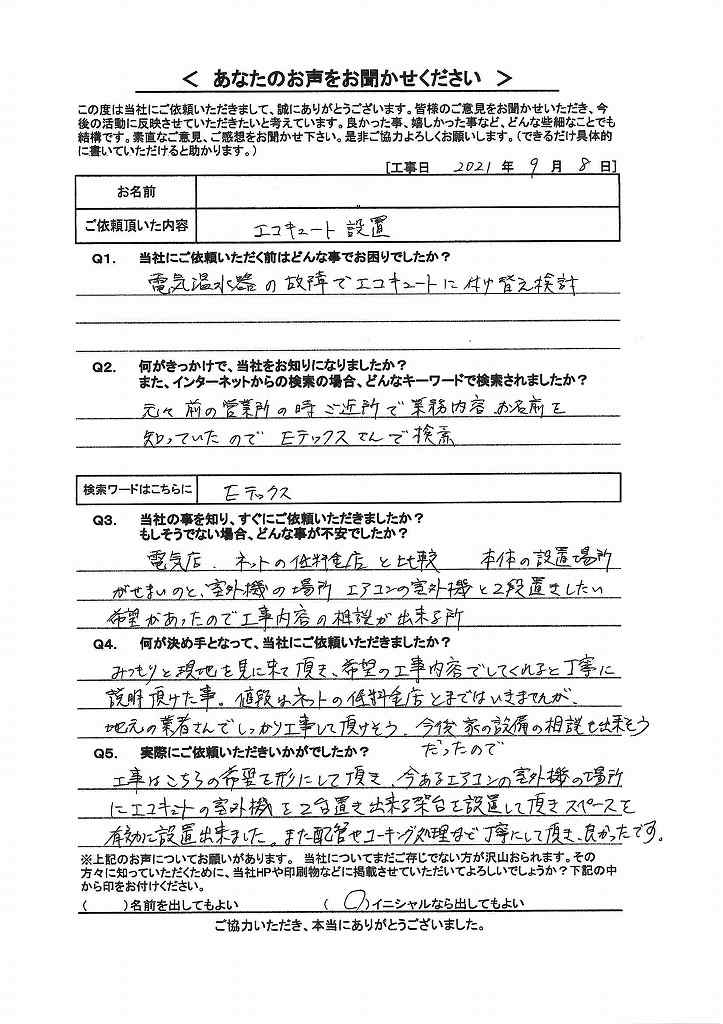 ＜ あなたのお声をお聞かせください ＞
この度は当社にご依頼いただきまして、誠にありがとうございます。皆様のご意見をお聞かせいただき、今
後の活動に反映させていただきたいと考えています。良かった事、嬉しかった事など、どんな些細なことでも
結構です。素直なご意見、ご感想をお聞かせ下さい。是非ご協力よろしくお願いします。（できるだけ具体的
に書いていただけると助かります。）
[工事日 2021 年 9 月 8 日]
お名前
ご依頼頂いた内容 エコキュート設置
Q1. 当社にご依頼いただく前はどんな事でお困りでしたか？
電気温水器の故障でエコキュートに付け替え検討
Q2. 何がきっかけで、当社をお知りになりましたか？
また、インターネットからの検索の場合、どんなキーワードで検索されましたか？
元々前の営業所の時ご近所で業務内容お名前を
知っていたのでEテックスさんで検索
検索ワードはこちらに Eテックス
Q3. 当社の事を知り、すぐにご依頼いただきましたか？
もしそうでない場合、どんな事が不安でしたか？
電気店、ネットの低料金店と比較 本体の設置場所
がせまいのと、室外機の場所 エアコンの室外機と2段置きしたい
希望があったので工事内容の相談が出来る所
Q4. 何が決め手となって、当社にご依頼いただきましたか？
みっちりと現地を見に来て頂き、希望の工事内容でしてくれると丁寧に
説明頂けた事。値段はネットの低料金店とまではいきませんが、
地元の業者さんでしっかり工事して頂けそう、今後家の設備の相談も出来そう
だったので
Q5. 実際にご依頼いただきいかがでしたか？
工事はこちらの希望を形にして頂き、今あるエアコンの室外機の場所
にエコキュートの室外機を2台置き出来る架台を設置して頂きスペースを
有効に設置出来ました。また配管やコーキング処理など丁寧にして頂き、良かったです。
※上記のお声についてお願いがあります。 当社についてまだご存じでない方が沢山おられます。その
方々に知っていただくために、当社HPや印刷物などに掲載させていただいてよろしいでしょうか？下記の中
から印をお付けください。
（ ）名前を出してもよい （ ○ ）イニシャルなら出してもよい
ご協力いただき、本当にありがとうございました。